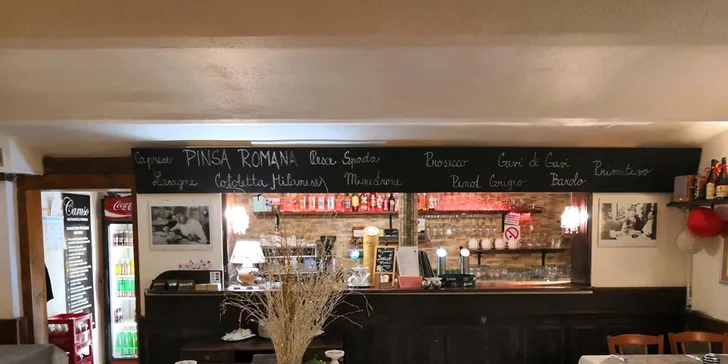 Caprese PINSA ROMANA Pesce Spada Prosecco Gavi di Gavi Primitivo
Lasagne Cotoletta Milanese Minestrone Pinot Grigio Barolo
Coca-Cola